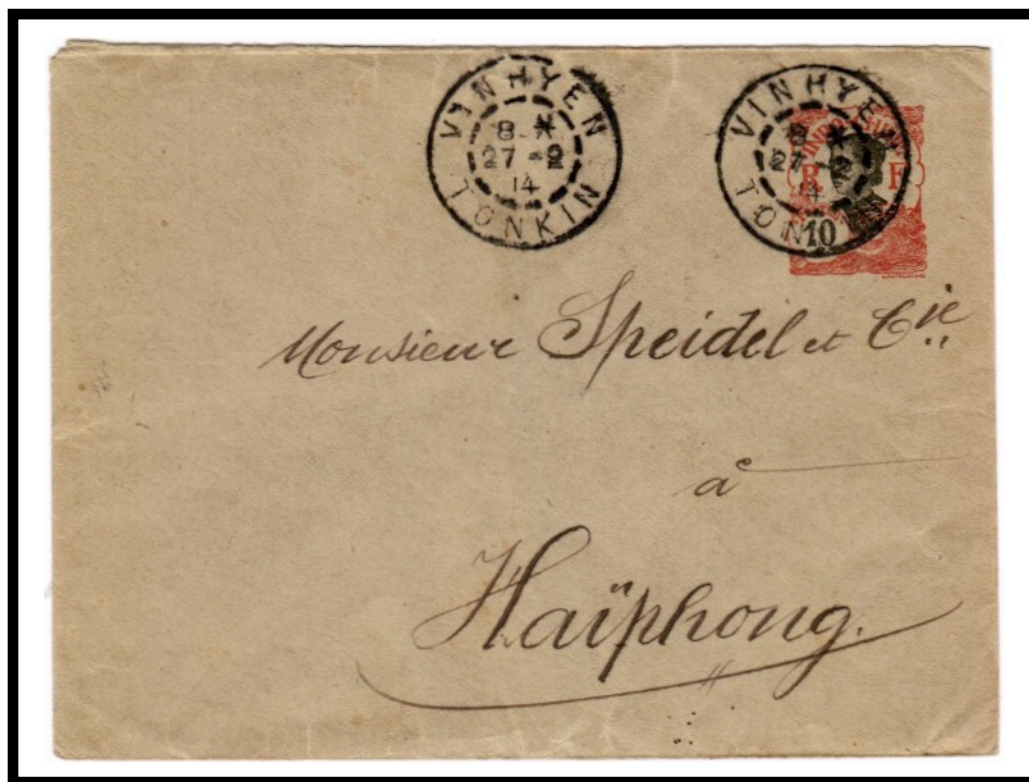 VINHYEN
8 *
27 - 2
14
TONKIN
VINHYEN
8 *
27 - 2
14
TON
R F
10
Monsieur Speidel et Cie
à
Haïphong.